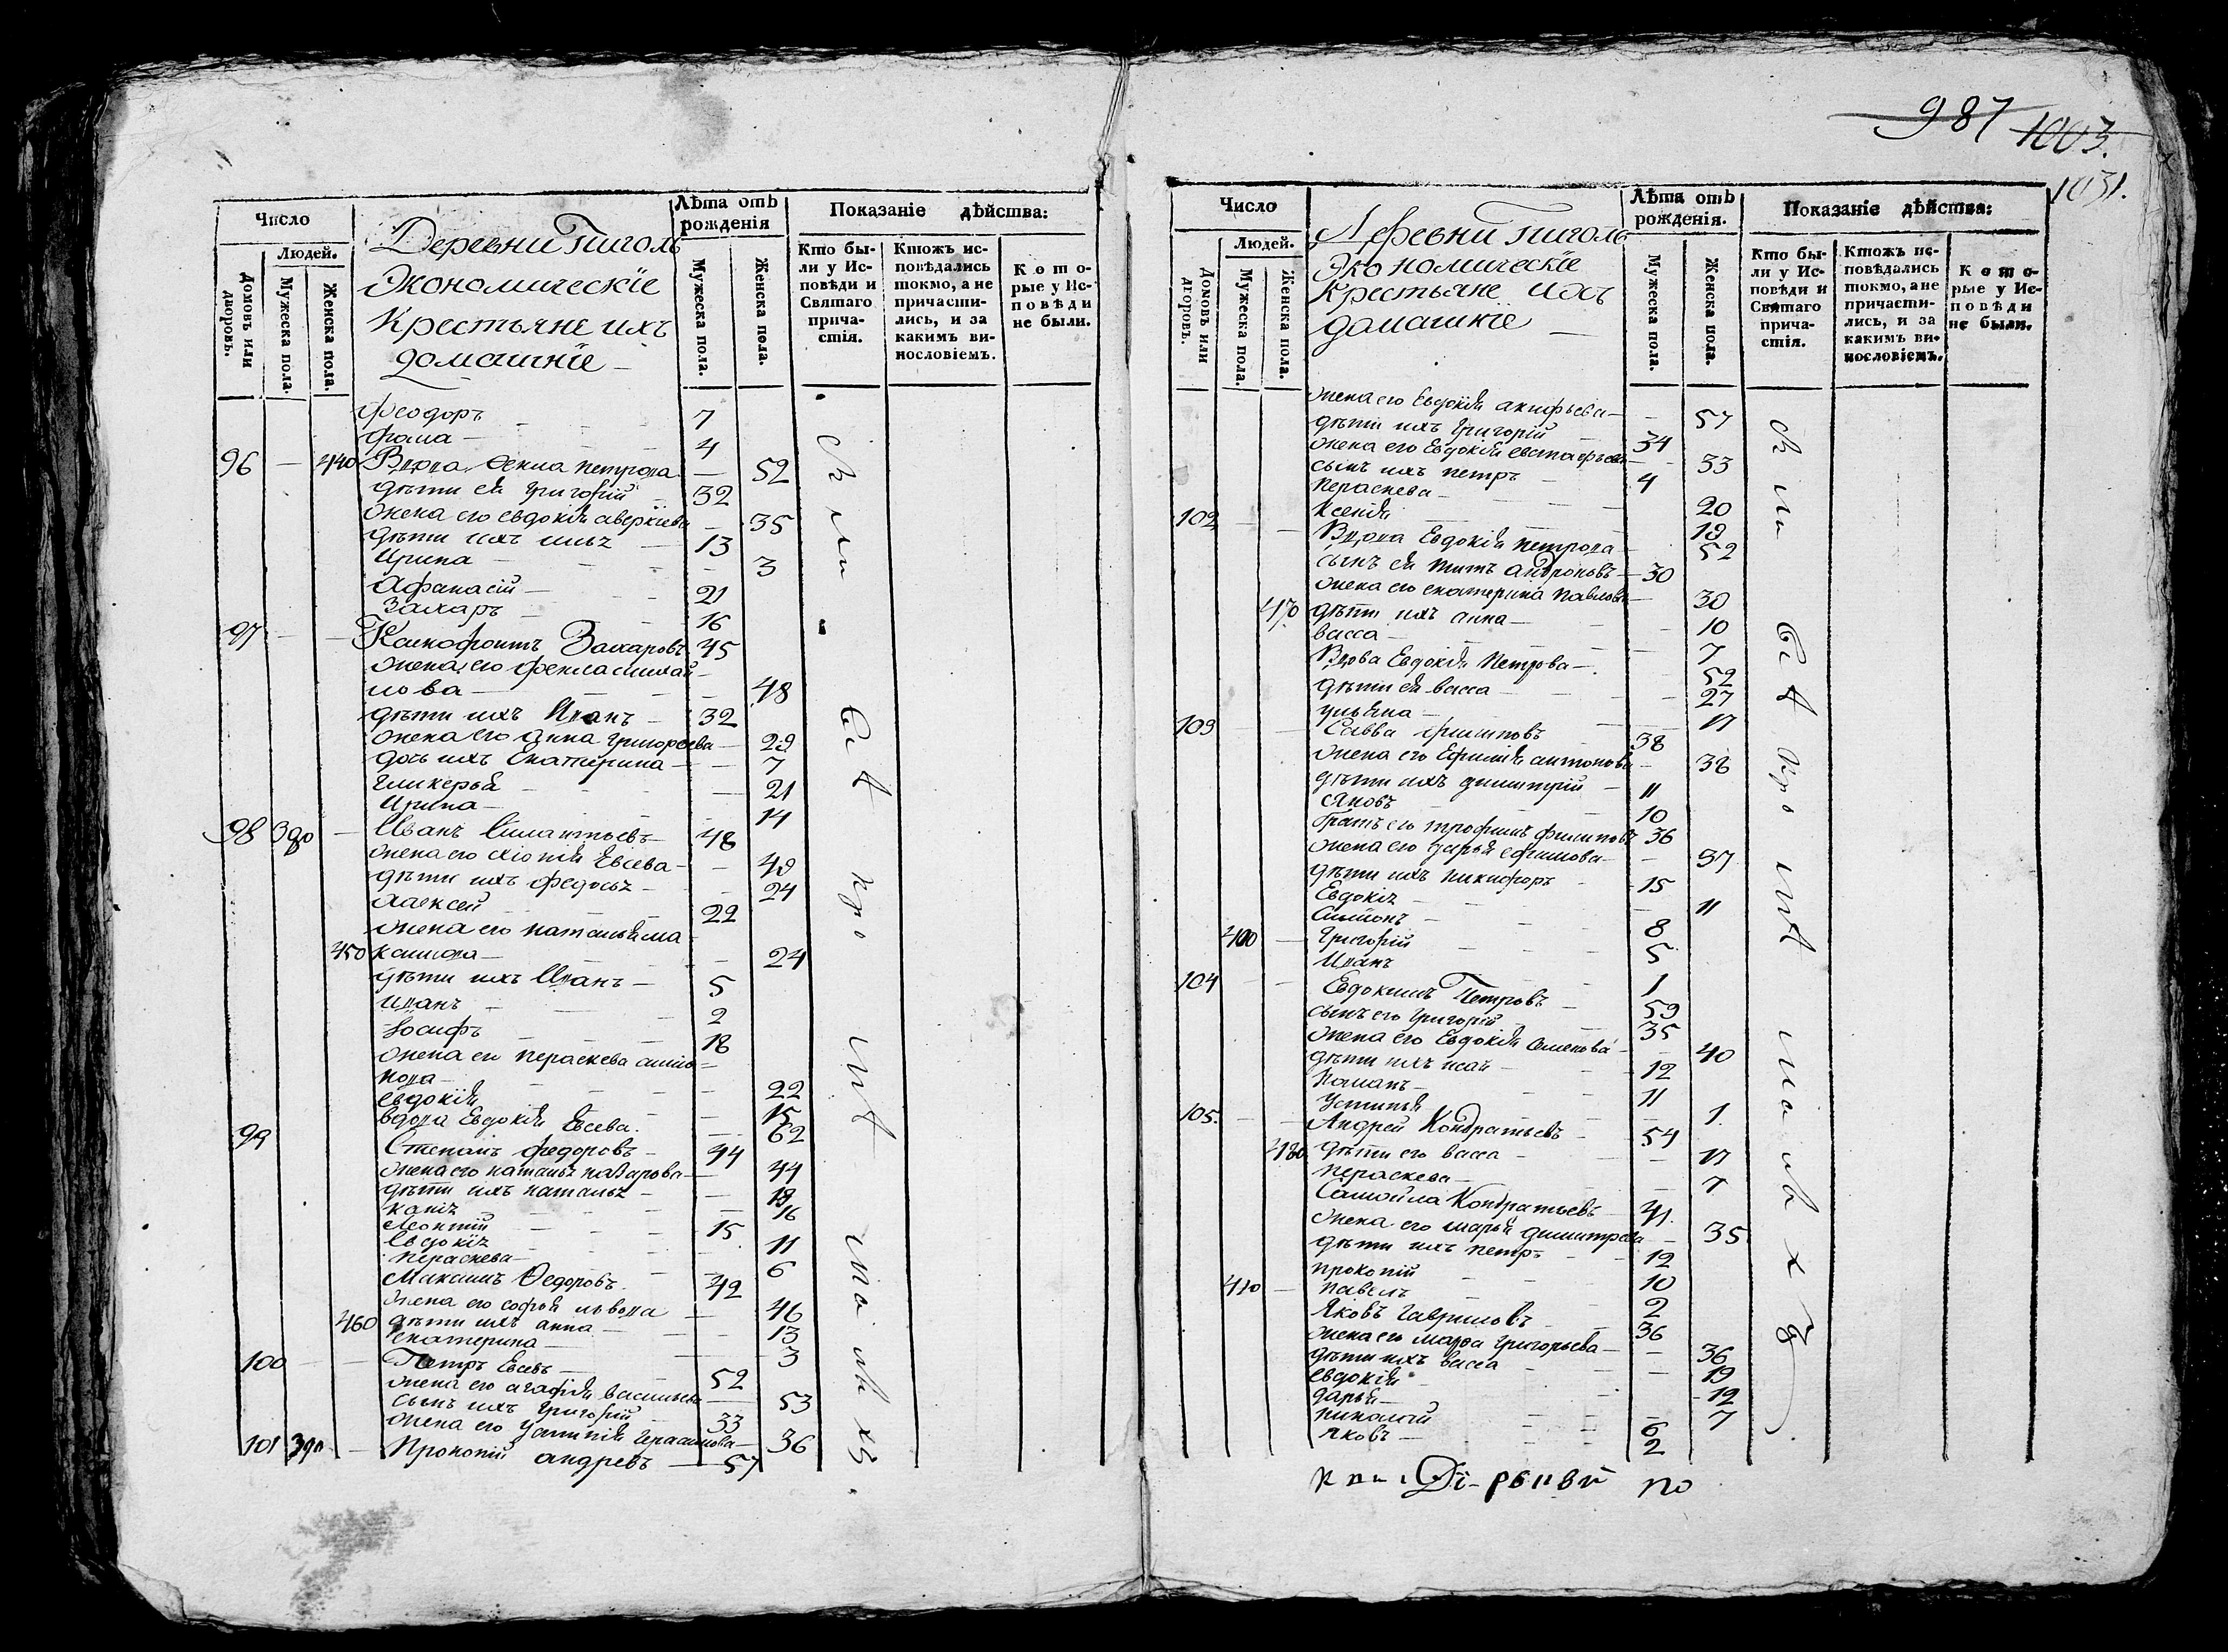 Число
Людей.
Домовъ или дворовъ.
Мужеска пола.
Женска пола.
Деревни Пиголь
Экономическіе
Крестьяне ихъ
домашніе
Лѣта отъ рожденія
Мужеска пола.
Женска пола.
Показаніе дѣйства:
Кто были у Исповѣди и Святаго причастія.
Ктожъ исповѣдались токмо, а не причастились, и за какимъ винословіемъ.
Которые у Исповѣди не были.
феодоръ 7
фома 4
96 440 Вдова Фекла петрова 52
дѣти ея Григорій 32
жена его евдокія аверкіева 35
дѣти ихъ 13
Ирина 3
Афанасій 21
Захаръ 16
97 Ксинофонтъ Захаровъ 45
жена его фекла михай
лова 48
дѣти ихъ Иванъ 32
жена его анна григорьева 29
дочь ихъ Екатерина 7
гликерья 21
Ирина 14
98 390 Иванъ 48
жена его хіонія Евсева 49
дѣти ихъ федосья 24
Алексей 22
жена его наталья ма
450 24
дѣти ихъ Иванъ 5
иванъ 2
Іосифъ 18
жена его пераскева
22
евдокія 15
вдова Евдокія Евсева. 62
99 Степанъ федоровъ 44
жена его наталья назарова 44
дѣти ихъ наталья 19
16
Леонтій 15
Евдокія 11
пераскева 6
Максимъ Федоровъ 42
жена его софья львова 46
460 дѣти ихъ анна 13
екатерина 3
100 Петръ Евсевъ 52
жена его агафія васильева 53
сынъ ихъ григорій 33
жена его устинія герасимова 36
101 Прокопій андревъ 57
987 1003.
1031.
Число
Людей.
Домовъ или дворовъ.
Мужеска пола.
Женска пола.
Деревни Пиголь
Экономическіе
Крестьяне ихъ
домашніе
Лѣта отъ рожденія.
Мужеска пола.
Женска пола.
Показаніе дѣйства:
Кто были у Исповѣди и Святаго причастія.
Ктожъ исповѣдались токмо, а не причастились, и за какимъ винословіемъ.
Которые у Исповѣди не были.
жена его Евдокія акифьева 57
дѣти ихъ Григорій 34
жена его Евдокія евстафьева 33
сынъ ихъ петръ 4
пераскева 20
Ксенія 19
102 Вдова Евдокія петрова 52
сынъ ея титъ андроновъ 30
жена его екатерина павлова 30
470 дѣти ихъ анна 10
васса 7
Вдова Евдокія Петрова 52
дѣти ея васса 27
ульяна 17
103 Савва филиповъ 38
жена его Ефимія антонова 38
дѣти ихъ димитрій 11
Яковъ 10
братъ его трофимъ филиповъ 36
жена его дарья ефимова 37
дѣти ихъ никифоръ 15
Евдокія 11
Симионъ 8
400 Григорій 5
Иванъ 1
104 Евдокимъ Петровъ 59
сынъ его григорій 35
жена его Евдокія семенова 40
дѣти ихъ исай 12
11
Устинья 1.
105. Андрей Кондратьевъ 54
480 дѣти его васса 17
пераскева 7
Самойла Кондратьевъ 41.
жена его марья димитрева 35
дѣти ихъ петръ 12
прокопій 10
410 павелъ 2
Яковъ Гавриловъ 36
жена его марфа григорьева 36
дѣти ихъ васса 19
евдокія 12
дарья 7
николай 6
Яковъ 2